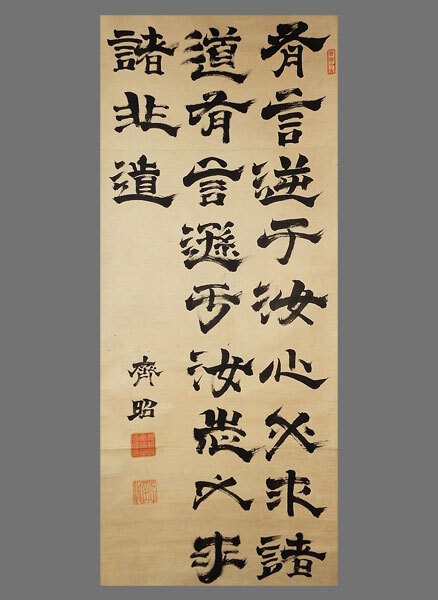 有言逆于汝心必求諸
道有言遜于汝志必求
諸非道
齊昭